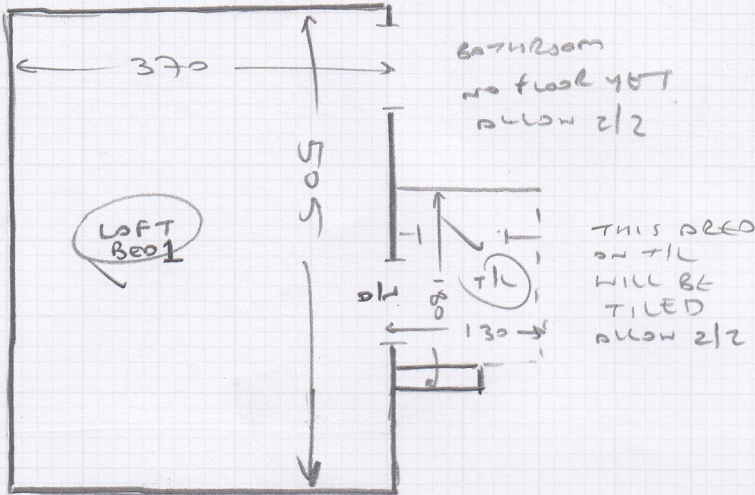 370
505
LOFT
BED 1
BATHROOM
NO FLOOR YET
ALLOW 2/2
T
T
T/L
180
130
D/W
THIS AREA
ON T/L
WILL BE
TILED
ALLOW 2/2